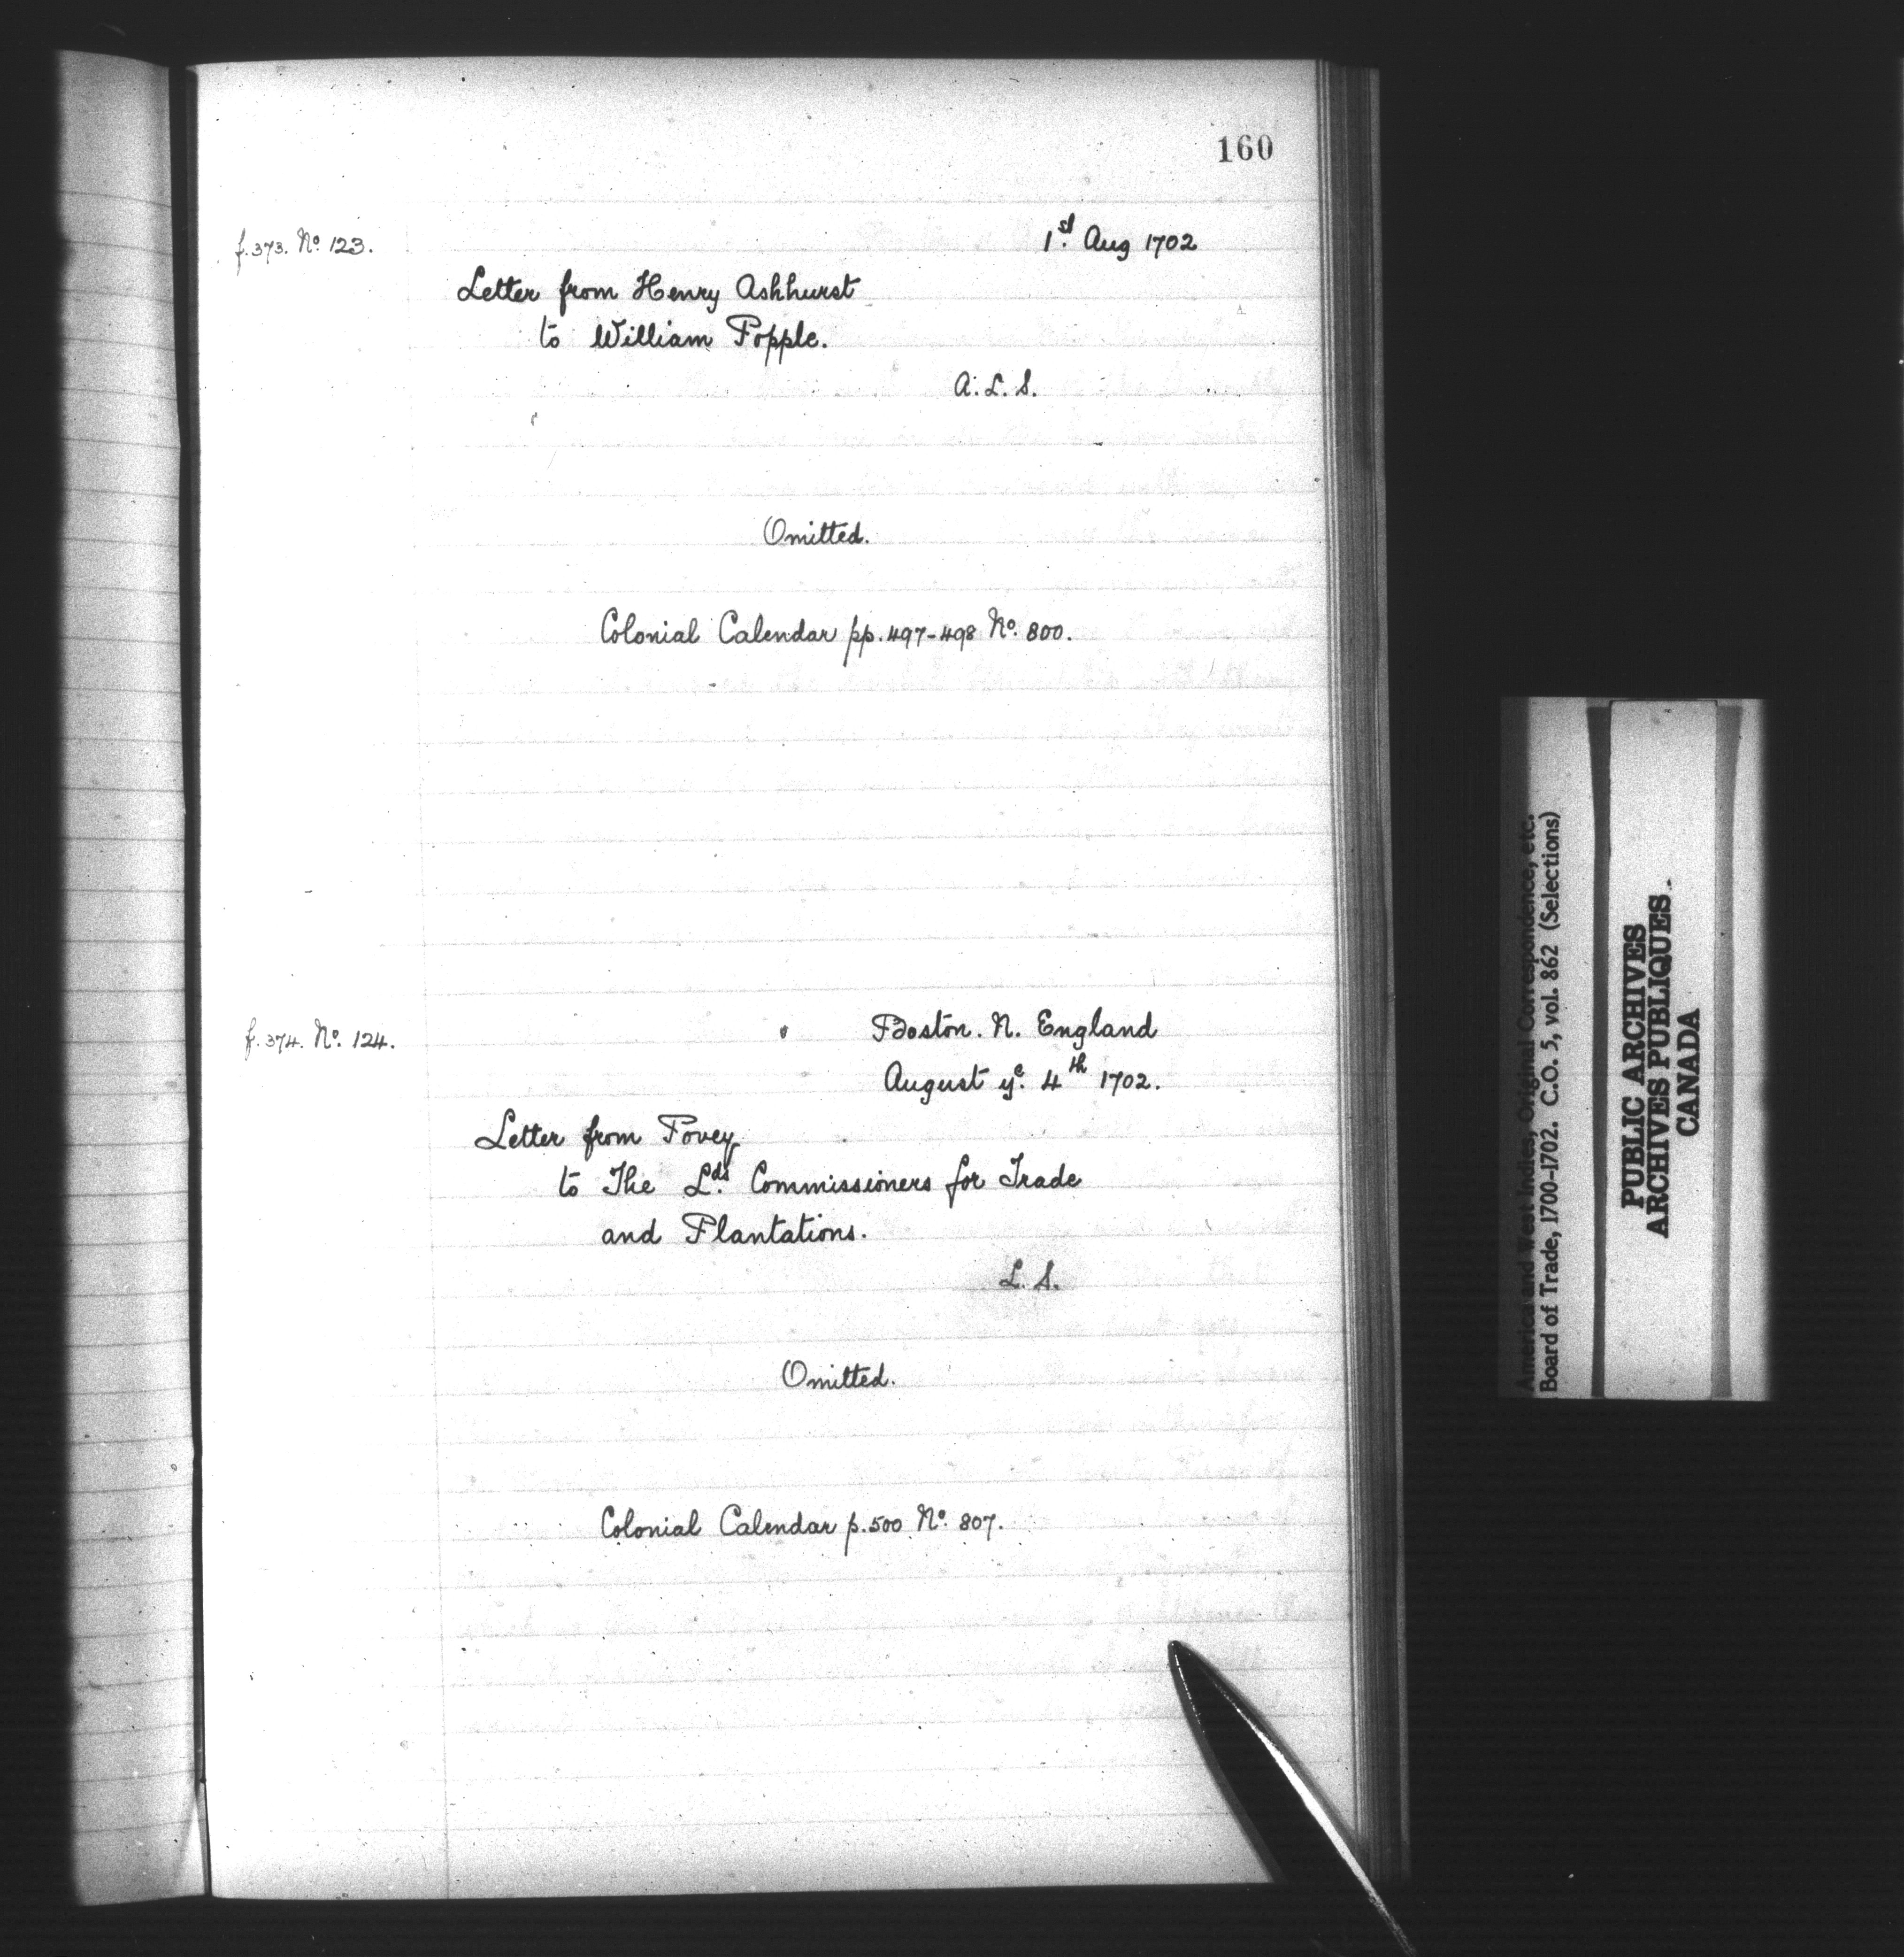 160
f. 373. No. 123.
1st Aug 1702
Letter from Henry Ashhurst
to William Popple.
A. L. S.
Omitted.
Colonial Calendar pp. 497-498 No. 800.
f. 374. No. 124.
Boston. N. England
August ye. 4th 1702.
Letter from Povey
to The Lds. Commissioners for Trade
and Plantations.
L. S.
Omitted.
Colonial Calendar p. 500 No. 807.
America and West Indies, Original Correspondence, etc.
Board of Trade, 1700-1702. C.O. 5, vol. 862 (Selections)
PUBLIC ARCHIVES
ARCHIVES PUBLIQUES
CANADA